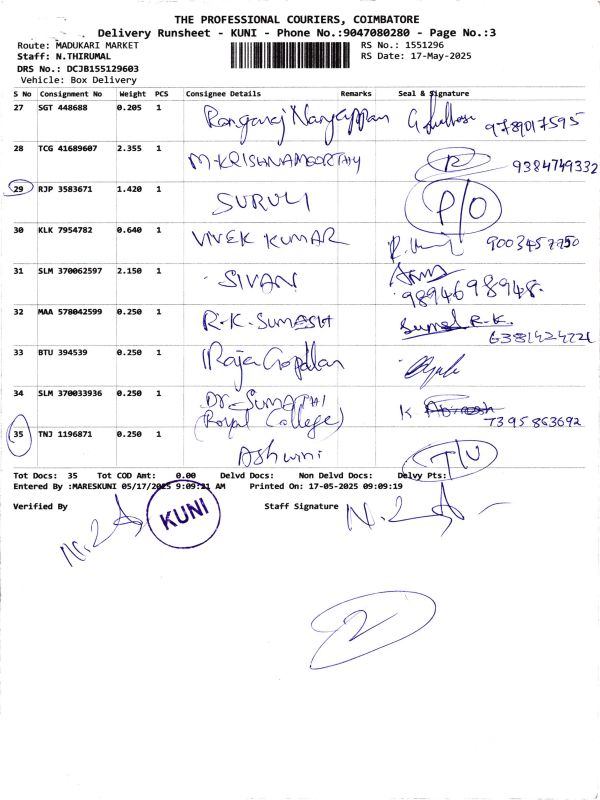 THE PROFESSIONAL COURIERS, COIMBATORE
Delivery Runsheet - KUNI - Phone No.:9047080280 - Page No.:3
Route: MADUKARI MARKET RS No.: 1551296
Staff: N.THIRUMAL RS Date: 17-May-2025
DRS No.: DCJB155129603
Vehicle: Box Delivery
S No Consignment No Weight PCS Consignee Details Remarks Seal & Signature
27 SGT 448688 0.205 1 9789017595
28 TCG 41689607 2.355 1 M-KRISHNAMOORTHY R 9384749332
29 RJP 3583671 1.420 1 SURULI P/O
30 KLK 7954782 0.640 1 VIVEK KUMAR
31 SLM 370062597 2.150 1 SIVAN 9894698948.
32 MAA 578042599 0.250 1 R-K-SUMESH R-K.
33 BTU 394539 0.250 1 RajaGopalan
34 SLM 370033936 0.250 1 Dr-SUMATHI K 7395863692
(Royal College)
35 TNJ 1196871 0.250 1 Ashwini T/U
Tot Docs: 35 Tot COD Amt: 0.00 Delvd Docs: Non Delvd Docs: Delvy Pts:
Entered By :MARESKUNI 05/17/2025 9:09:21 AM Printed On: 17-05-2025 09:09:19
Verified By KUNI Staff Signature
2